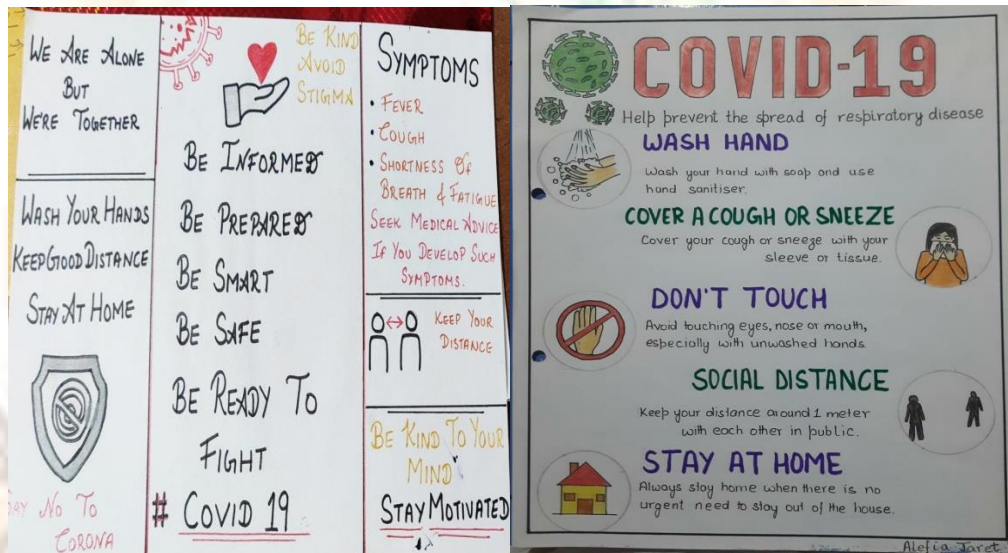 WE ARE ALONE
BUT
WE'RE TOGETHER
WASH YOUR HANDS
KEEP GOOD DISTANCE
STAY AT HOME
SAY NO TO
CORONA
BE KIND
AVOID
STIGMA
BE INFORMED
BE PREPARED
BE SMART
BE SAFE
BE READY TO
FIGHT
# COVID 19
SYMPTOMS
• FEVER
• COUGH
• SHORTNESS OF
BREATH & FATIGUE
SEEK MEDICAL ADVICE
IF YOU DEVELOP SUCH
SYMPTOMS.
KEEP YOUR
DISTANCE
BE KIND TO YOUR
MIND
STAY MOTIVATED
COVID-19
Help prevent the spread of respiratory disease
WASH HAND
Wash your hand with soap and use
hand sanitiser.
COVER A COUGH OR SNEEZE
Cover your cough or sneeze with your
sleeve or tissue.
DON'T TOUCH
Avoid touching eyes, nose or mouth,
especially with unwashed hands.
SOCIAL DISTANCE
Keep your distance around 1 meter
with each other in public.
STAY AT HOME
Always stay home when there is no
urgent need to stay out of the house.
Alefia